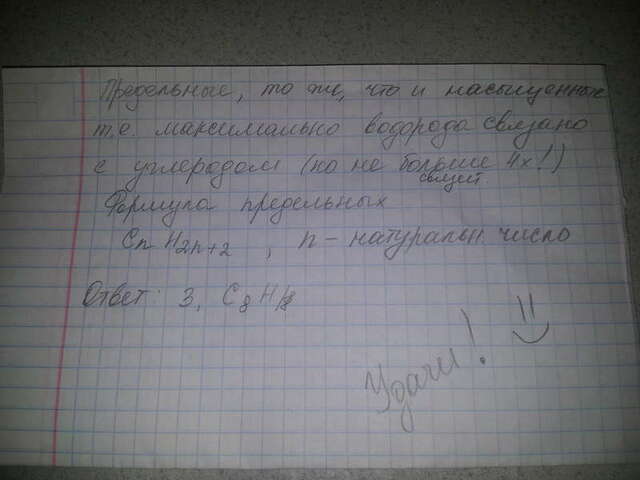 Предельные, то же, что и насыщенные
т.е. максимально водорода связано
с углеродом (но не больше 4х!)
связей
Формула предельных
CnH2n+2, n – натуральн. число
Ответ: 3, C8H18
Удачи! =)